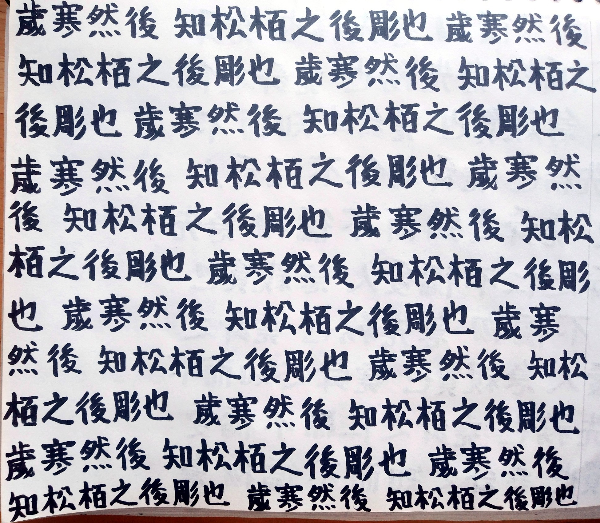 歲寒然後 知松栢之後彫也 歲寒然後
知松栢之後彫也 歲寒然後 知松栢之
後彫也 歲寒然後 知松栢之後彫也
歲寒然後 知松栢之後彫也 歲寒然
後 知松栢之後彫也 歲寒然後 知松
栢之後彫也 歲寒然後 知松栢之後彫
也 歲寒然後 知松栢之後彫也 歲寒
然後 知松栢之後彫也 歲寒然後 知松
栢之後彫也 歲寒然後 知松栢之後彫也
歲寒然後 知松栢之後彫也 歲寒然後
知松栢之後彫也 歲寒然後 知松栢之後彫也